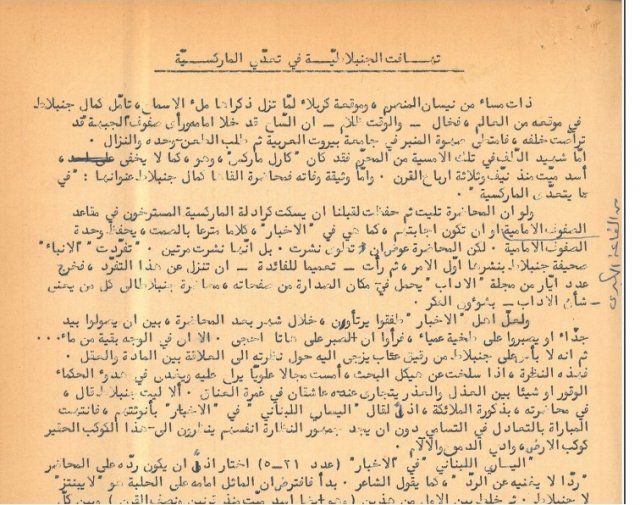 تهافت الجنبلاطية في تحدي الماركسية
ذات مساء من نيسان المنصرم ، وموقعة كربلاء لما تزل ذكراها ملء الاسماع ، تأمل كمال جنبلاط
في موقعه من العالم ، فخال — والوقت ظلام — ان الساح قد خلا امامه ورأى صفوف الجبهة قد
تراصت خلفه ، فامتطى صهوة المنبر في جامعة بيروت العربية ثم طلب الطعن وحده والنزال .
أما شهيد الطف في تلك الامسية من المحرم فقد كان "كارل ماركس" ، وهو ، كما لا يخفى على احد ،
ميت منذ نيف وثلاثة ارباع القرن . واما وثيقة وفاته فمحاضرة القاها كمال جنبلاط عنوانها : "في
ما يتعدى الماركسية" .
ولو ان المحاضرة تليت ثم حفظت لقبلنا ان يسكت كرادلة الماركسية المسترخون في مقاعد
الصفوف الامامية او ان تكون اجابتهم ، كما هي في "الاخبار" ، كلاما مترعا بالصمت ، يحفظ وحدة
الصفوف الامامية . لكن المحاضرة عوض ان تطوى نشرت . بل انها نشرت مرتين . تفردت "الانباء"
صحيفة جنبلاط بنشرها اول الامر ، ثم رأت — تعميما للفائدة — ان تنزل عن هذا التفرد ، فخرج
عدد ايار من مجلة "الاداب" يحمل في مكان الصدارة من صفحاته ، محاضرة جنبلاط الى كل من يعنى
— شأن الاداب — بشؤون الفكر .
ولعل اهل "الاخبار" طفقوا يرتأون ، خلال شهر بعد المحاضرة ، بين ان يصولوا بيد
جذاء او يصبروا على طخية عمياء ، فرأوا ان الصبر على هاتا احجى . الا ان في الوجه بقية من ماء ...
ثم انه لا بأس على جنبلاط من رفيق عتاب يزجى اليه حول نظرته الى العلاقة بين المادة والعقل .
فهذه النظرة ، اذا سلخت عن هيكل البحث ، أمست مجالا علويا يرال عليه ويغض في هدوء الحكماء
الوقور او شيئا بين العذل والعذر يتجارى عنده عاشقان في غمرة العناق . ألا ليت جنبلاط قال ،
في محاضرته ، بذكورة الملائكة ، اذا لقال "اليسار اللبناني" في "الاخبار" بأنوثتهم ، فانتهت
المباراة بالتعادل في التسامي دون ان يجد جمهور النظارة انفسهم ينظرون الى هذا الكوكب الحقير
كوكب الارض ، وادي الدموع والالام .
"اليسار اللبناني" في "الاخبار" (عدد ٢١—٥) اختار اذاً ان يكون رده على المحاضر
"ردا لا يغنيه عن الرد" ، كما يقول الشاعر . بدأ فافترض ان الماثل امامه على الحلبة هو "لايبنتز"
لا جنبلاط . ثم خلط بين الاول من هذين (وهو ايضا اسد ميت منذ قرنين ونصف القرن) وبين كل